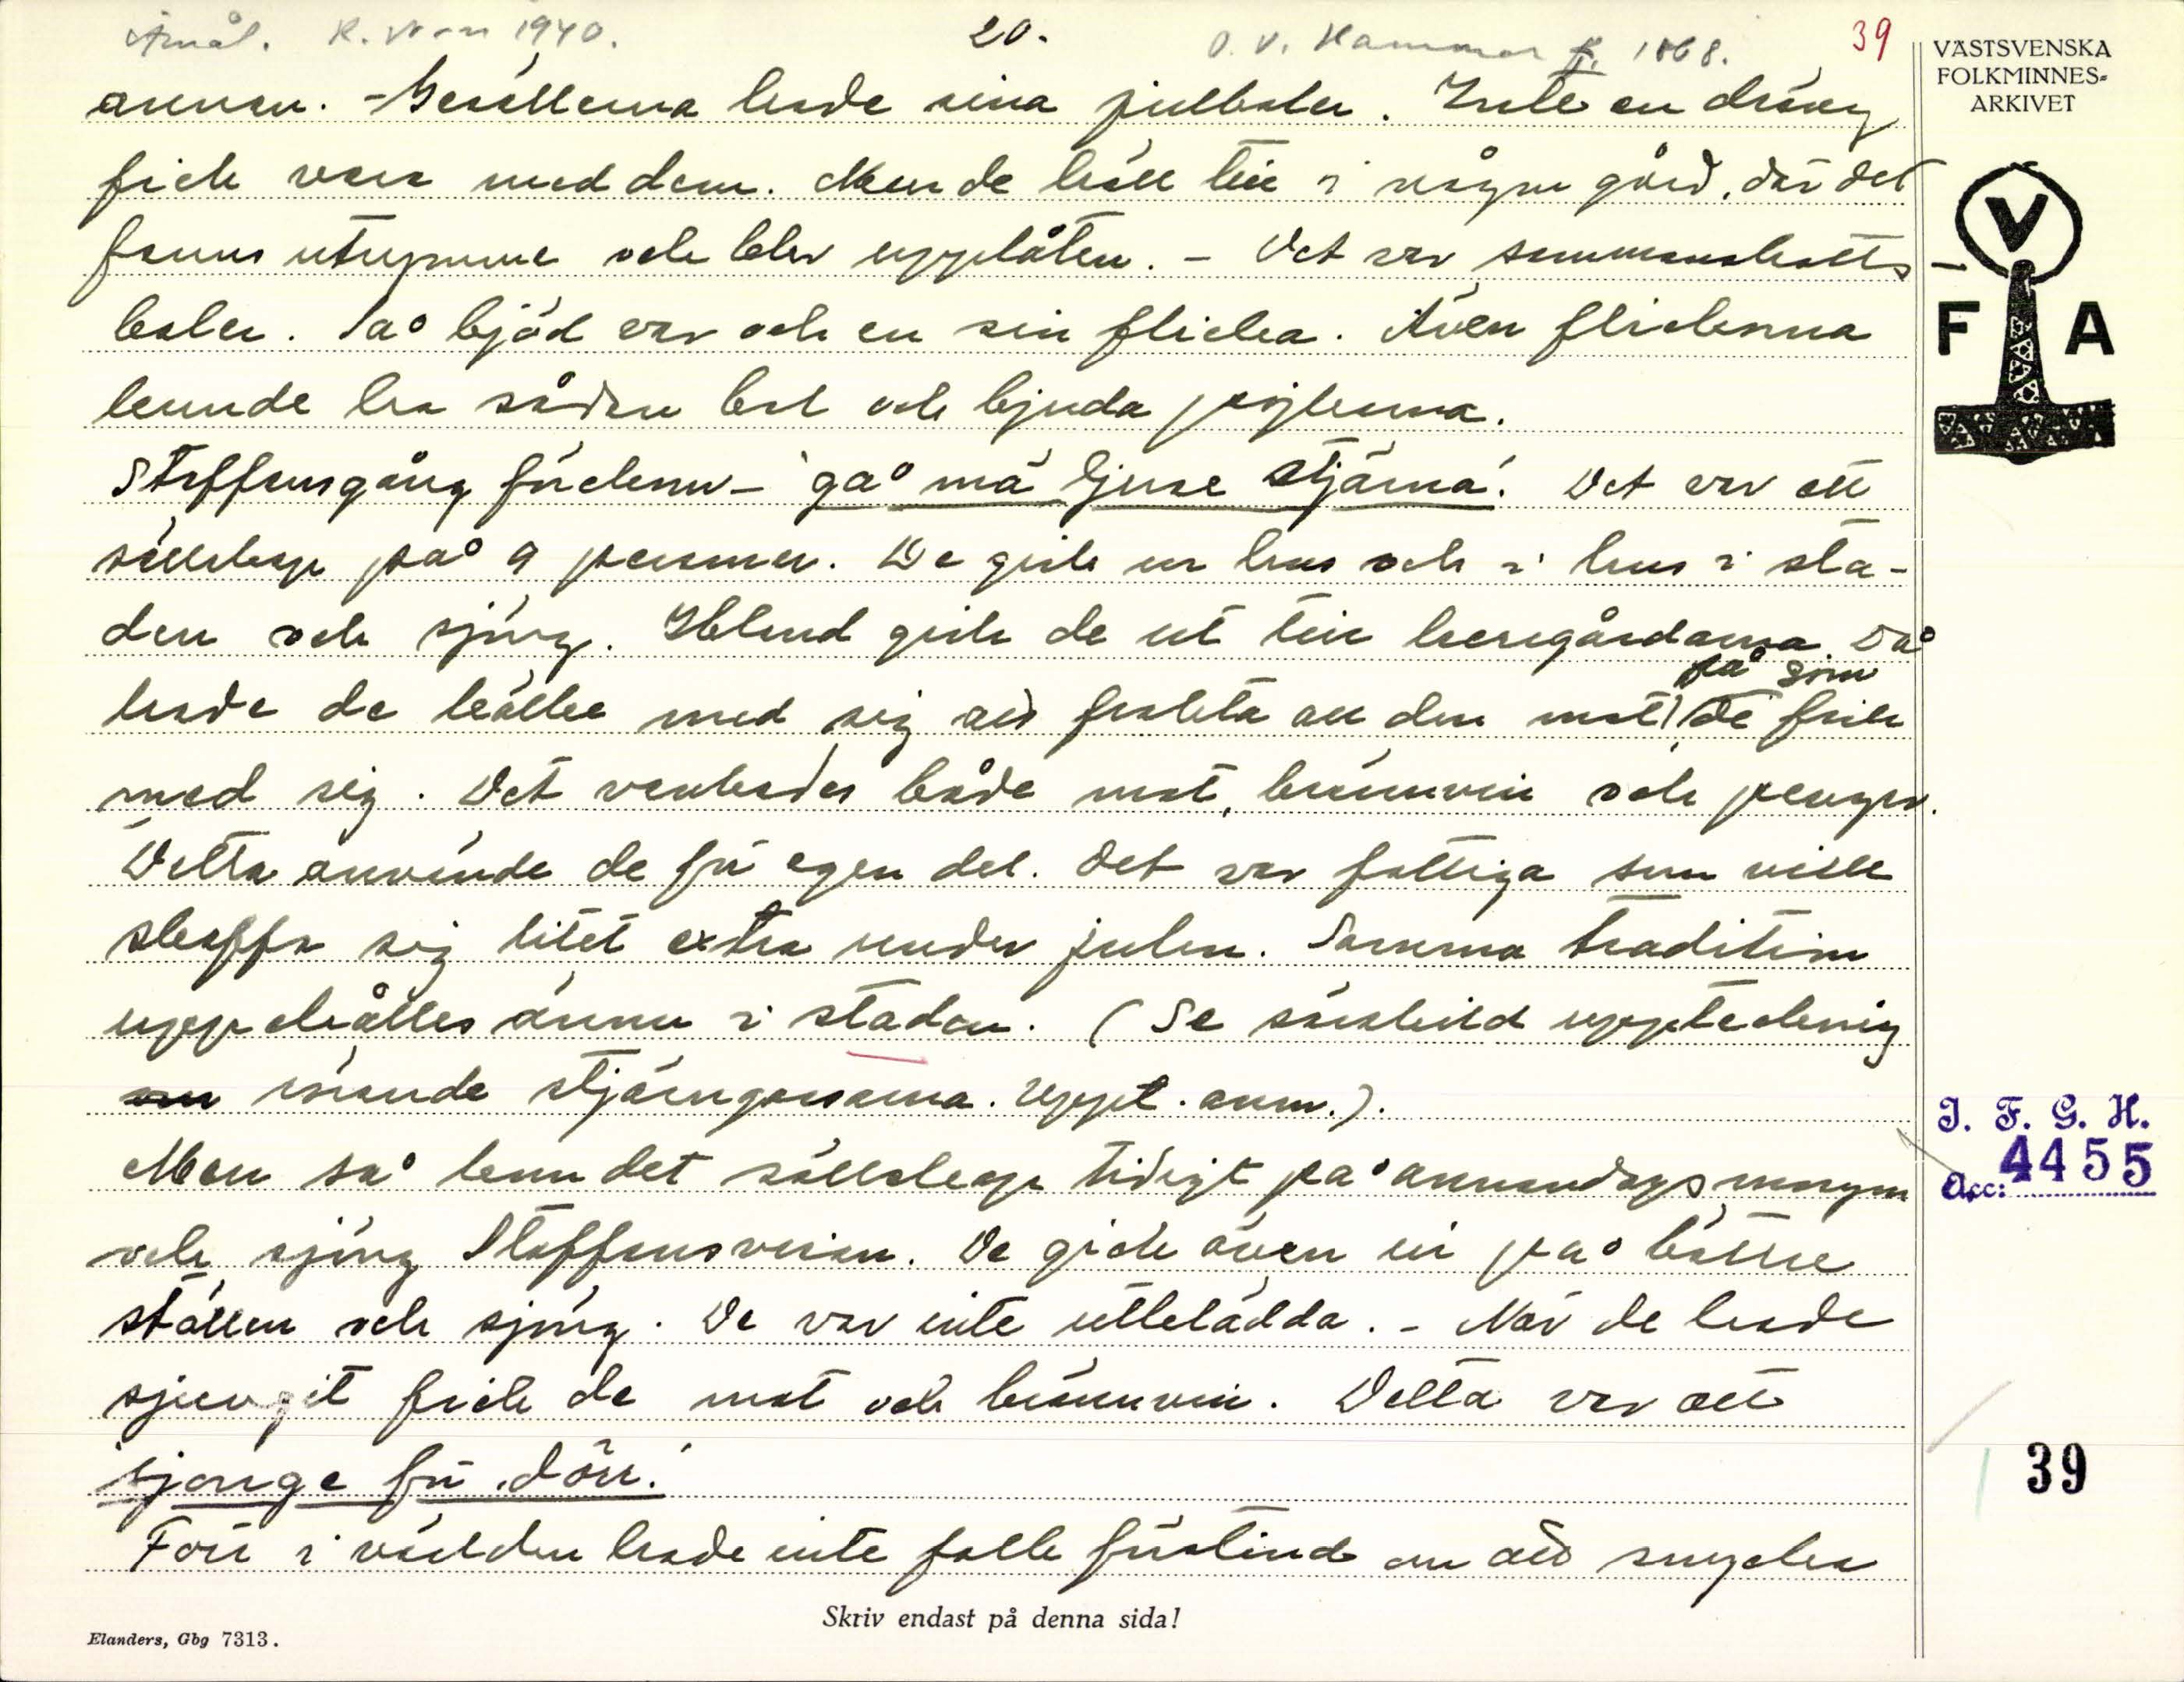 Åmål. K. Wran 1940. 20. O. V. Hammar f. 1868. 39
VÄSTSVENSKA
FOLKMINNES-
ARKIVET
V
F A
annan. - Gesällerna hade sina julbaler. Inte en dräng
fick vara med dem. Men de höll till i någon gård, där det
fanns utrymme och blev uppläten. - Det var sammanskotts-
baler. Så bjöd var och en sin flicka. Även flickorna
kunde ha sådan bal och bjuda pojkarna.
Staffansgång förekom - 'gå mä ljuse stjärna'. Det var ett
sällskap på 9 personer. De gick ur hus och i hus i sta-
den och sjöng. Ibland gick de ut till herrgårdarna. Då
hade de kälke med sig att frakta all den mat på som de fick
med sig. Det vankades både mat, brännvin och pengar.
Detta använde de för egen del. Det var fattiga som ville
skaffa sig litet extra under julen. Samma tradition
upprehålles ännu i staden. (Se särskild uppteckning
rörande stjärngossarna. Uppt. anm.).
Men så kom det sällskap tidigt på annandagsmorgon
och sjöng Staffansvisan. De gick även in på bättre
ställen och sjöng. De var inte utklädda. - När de hade
sjungit fick de mat och brännvin. Detta var att
'sjonge för dörr'.
Förr i världen hade inte folk förstånd om att smycka
J. F. G. H.
Acc: 4455
39
Skriv endast på denna sida!
Elanders, Gbg 7313.